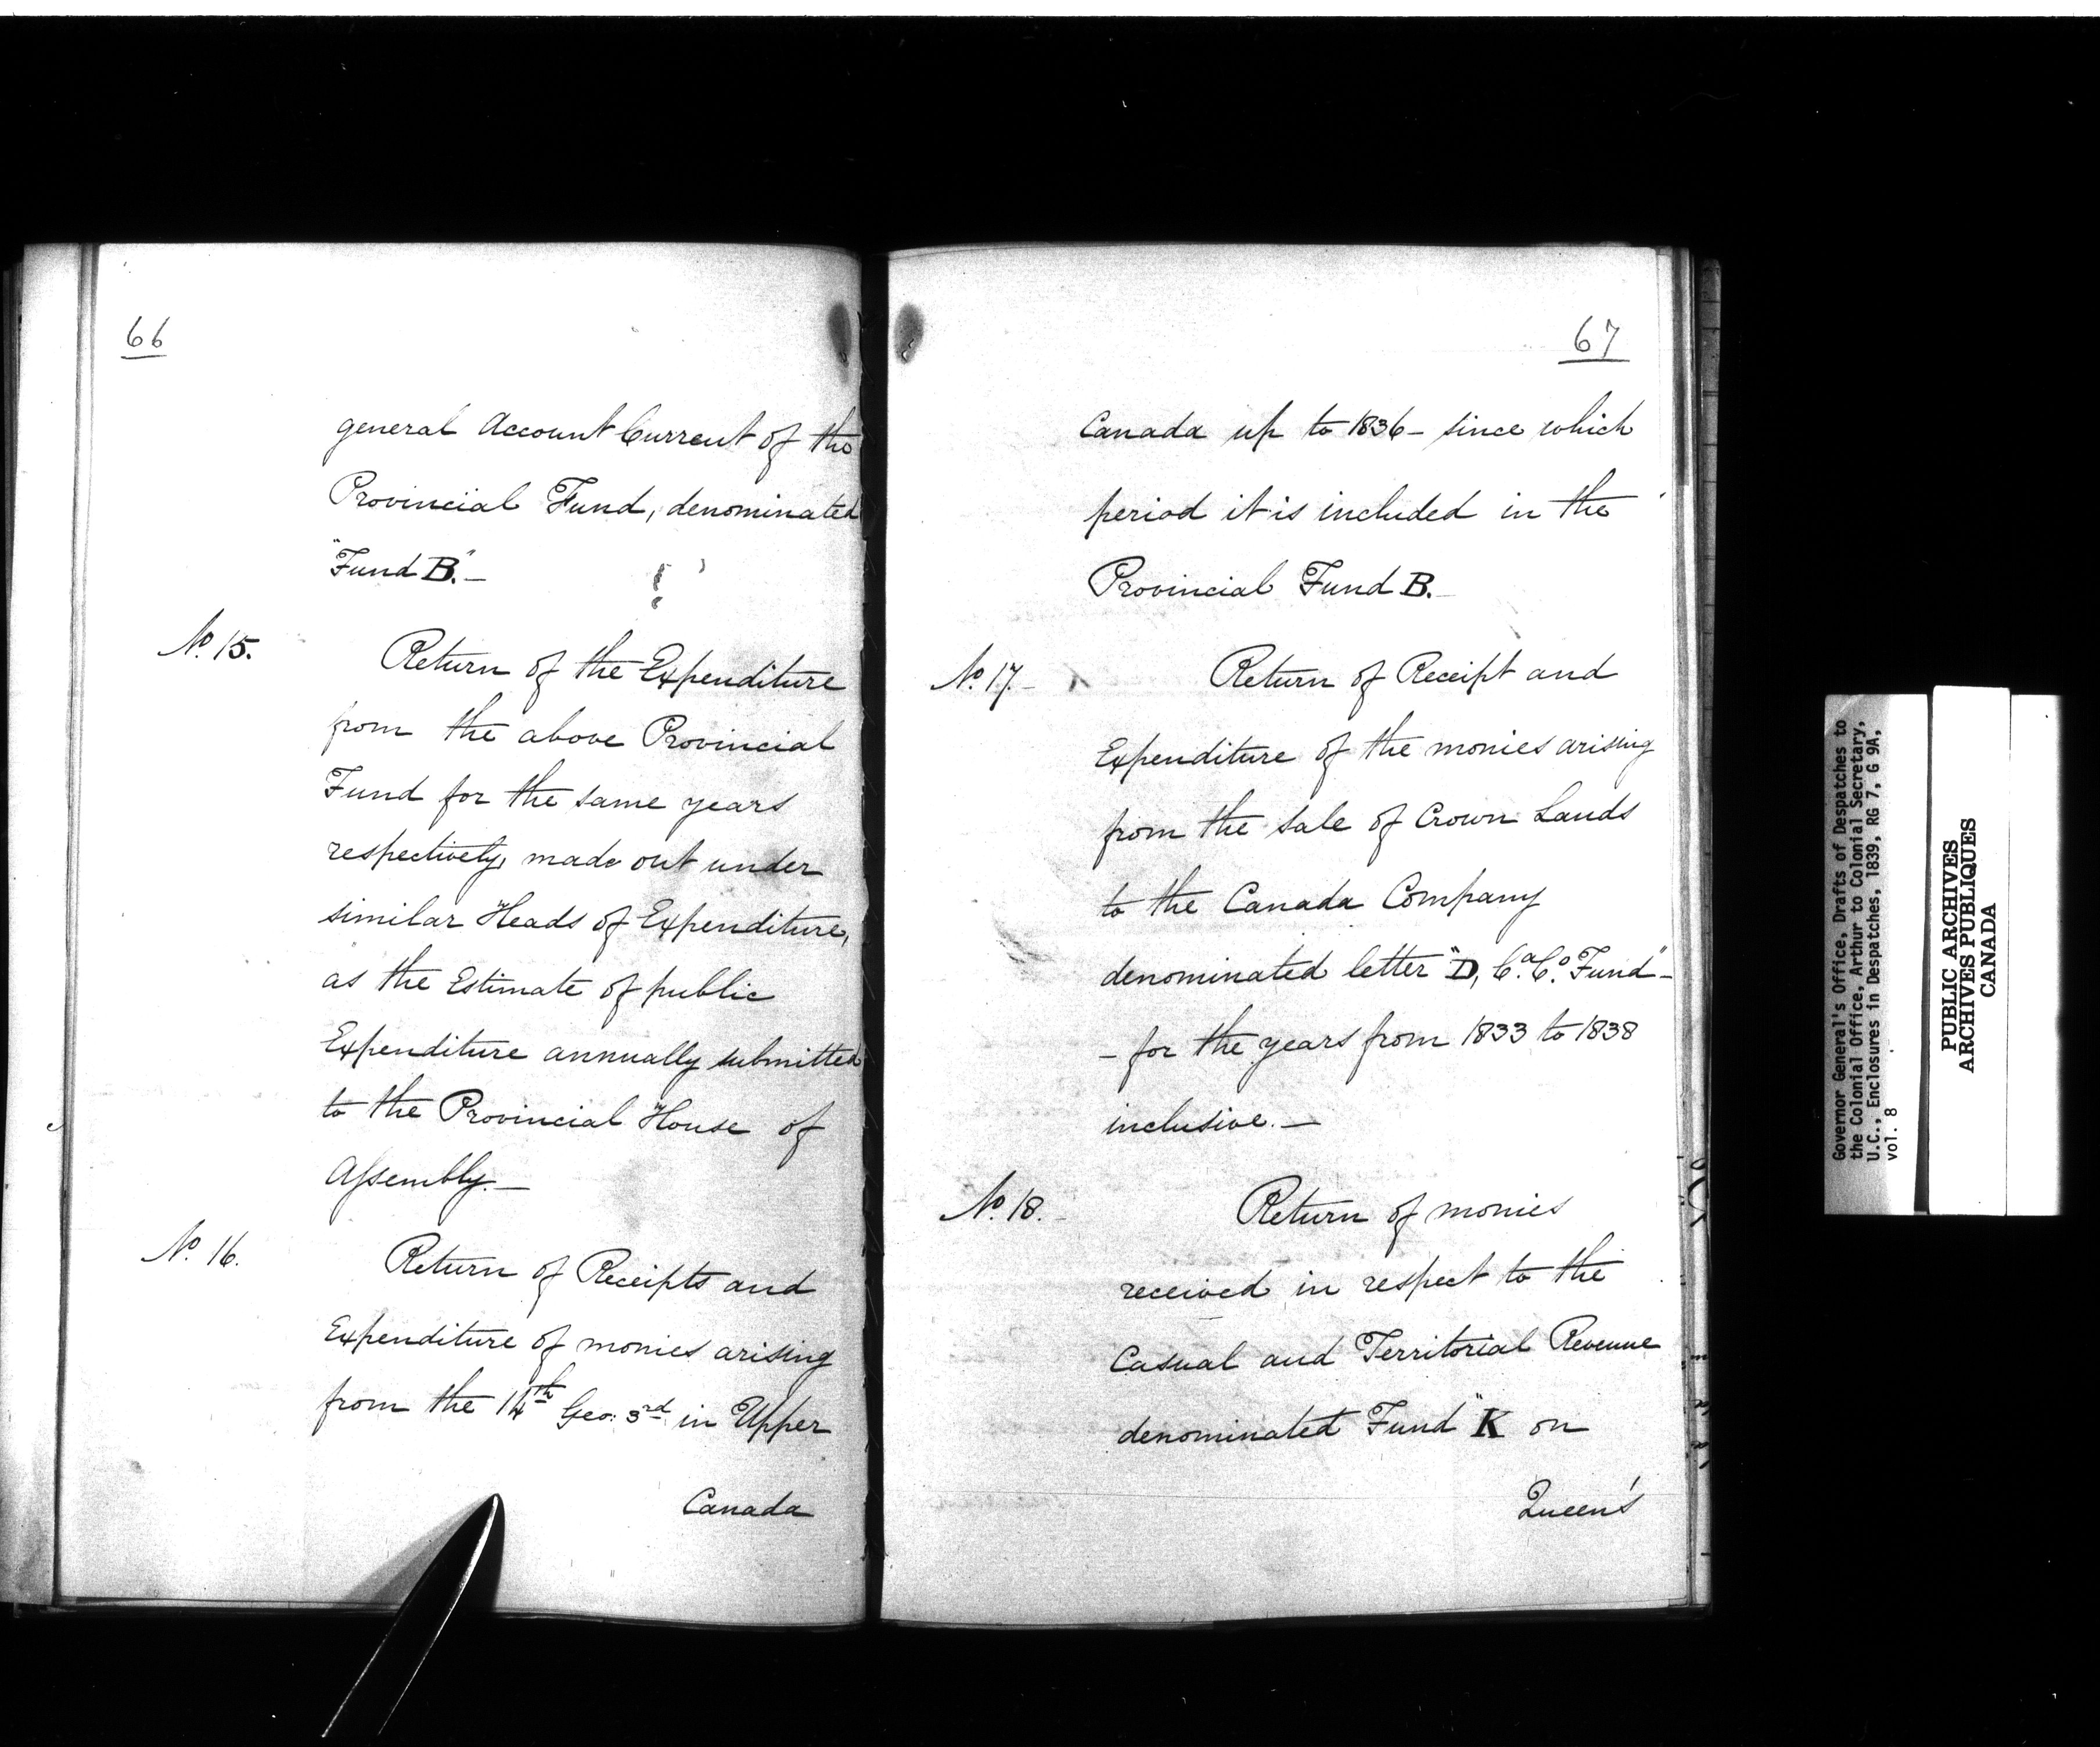 66
general Account Current of the
Provincial Fund, denominated
"Fund B."_
No. 15.
Return of the Expenditure
from the above Provincial
Fund for the same years
respectively, made out under
similar Heads of Expenditure,
as the Estimate of public
Expenditure annually submitted
to the Provincial House of
Assembly._
No. 16.
Return of Receipts and
Expenditure of monies arising
from the 14th Geo: 3rd in Upper
Canada
67
Canada up to 1836 _ since which
period it is included in the
Provincial Fund B._
No. 17._
Return of Receipt and
Expenditure of the monies arising
from the sale of Crown Lands
to the Canada Company
denominated letter "D, Ca. Co. Fund" _
_ for the years from 1833 to 1838
inclusive. _
No. 18._
Return of monies
received in respect to the
Casual and Territorial Revenue
denominated Fund "K on
Queen's
Governor General's Office, Drafts of Despatches to
the Colonial Office, Arthur to Colonial Secretary,
U.C., Enclosures in Despatches, 1839, RG 7, G 9A,
vol. 8
PUBLIC ARCHIVES
ARCHIVES PUBLIQUES
CANADA